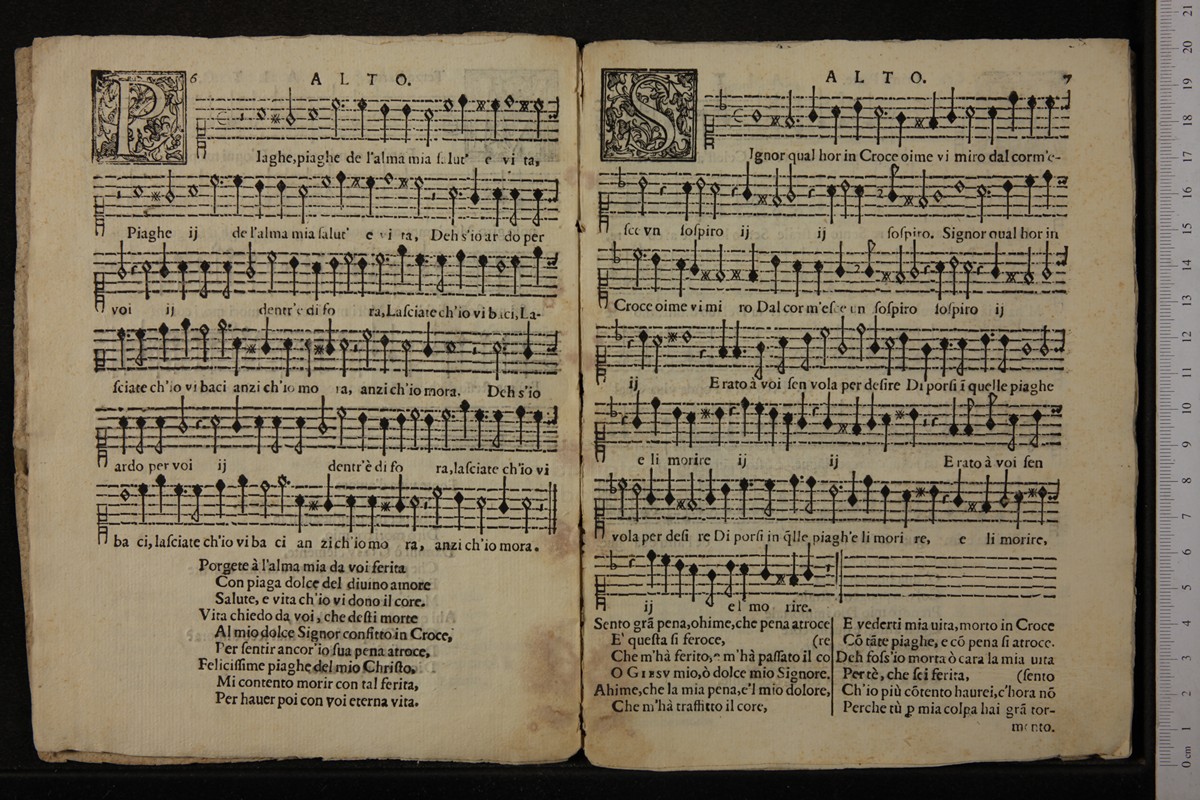 6 ALTO.
PIaghe,piaghe de l'alma mia salut' e vi ta,
Piaghe ij de l'alma mia salut' e vi ta, Deh s'io ar do per
voi ij dentr'e di fo ra,Lasciate ch'io vi baci,La-
sciate ch'io vi baci anzi ch'io mo ra, anzi ch'io mora. Deh s'io
ardo per voi ij dentr'è di fo ra,lasciate ch'io vi
ba ci,lasciate ch'io vi ba ci an zi ch'io mo ra, anzi ch'io mora.
Porgete à l'alma mia da voi ferita
Con piaga dolce del diuino amore
Salute, e vita ch'io vi dono il core.
Vita chiedo da voi, che desti morte
Al mio dolce Signor confitto in Croce,
Per sentir ancor'io sua pena atroce,
Felicissime piaghe del mio Christo,
Mi contento morir con tal ferita,
Per hauer poi con voi eterna vita.
ALTO. 7
SIgnor qual hor in Croce oime vi miro dal cor m'e-
sce vn sospiro ij ij sospiro. Signor qual hor in
Croce oime vi mi ro Dal cor m'esce un sospiro sospiro ij
ij E rato à voi sen vola per desire Di porsi ī quelle piaghe
e li morire ij ij E rato à voi sen
vola per desi re Di porsi in q̄lle piagh'e li mori re, e li morire,
ij e l' mo rire.
Sento grā pena,ohime,che pena atroce
E' questa si feroce, (re
Che m'hà ferito,e m'hà passato il co
O GIESV mio,ò dolce mio Signore.
Ahime,che la mia pena,e'l mio dolore,
Che m'hà traffitto il core,
E vederti mia uita,morto in Croce
Cō tāte piaghe, e cō pena si atroce.
Deh foss'io morta ò cara la mia uita
Per tè, che sei ferita, (sento
Ch'io più cōtento haurei,c'hora nō
Perche tù ꝑ mia colpa hai grā tor-
mento.